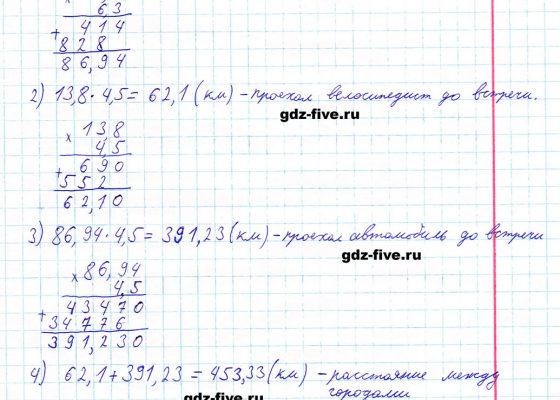 6,3
+ 414
828
86,94
2) 13,8 · 4,5 = 62,1 (км) – проехал велосипедист до встречи.
gdz-five.ru
× 13,8
4,5
+ 690
552
62,10
3) 86,94 · 4,5 = 391,23 (км) – проехал автомобиль до встречи
gdz-five.ru
× 86,94
4,5
+ 43470
34776
391,230
4) 62,1 + 391,23 = 453,33 (км) – расстояние между
городами
gdz-five.ru